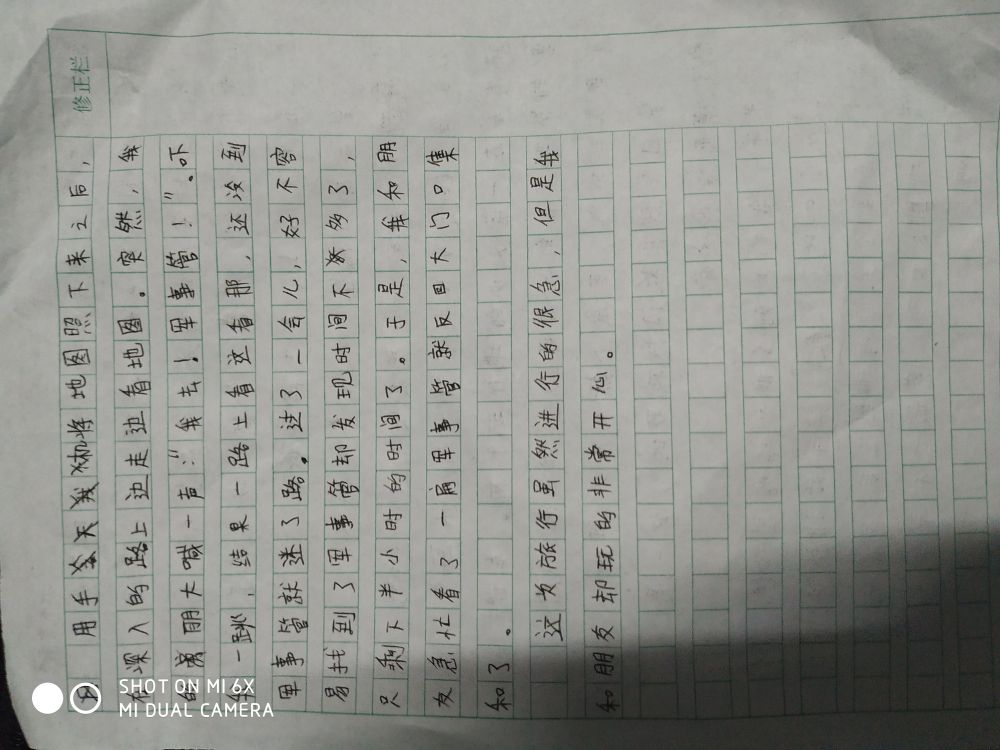 修正栏
用手机将地图照下来之后，
在深入的路上边走边看地图。突然，我
的朋大喊一声：“我去！军事管！”。吓
一跳，结果一路上看这看那，还没到
军事管就迷了路。过了一会儿，好不容
易找到了军事管却发现时间不多了，
只剩下半小时的时间了。于是，我和朋
友急忙看了一遍军事管就反回大门口集
和了。
这次旅行虽然进行的很急，但是我
和朋友却玩的非常开心。
SHOT ON MI 6X
MI DUAL CAMERA